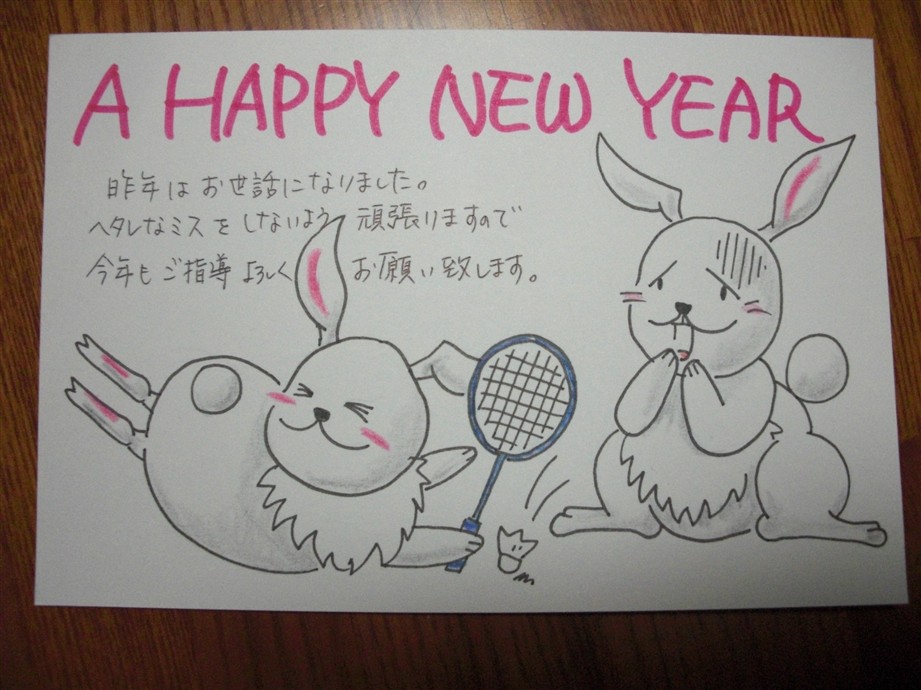 A HAPPY NEW YEAR
昨年はお世話になりました。
ヘタレなミスをしないよう 頑張りますので
今年もご指導よろしく お願い致します。